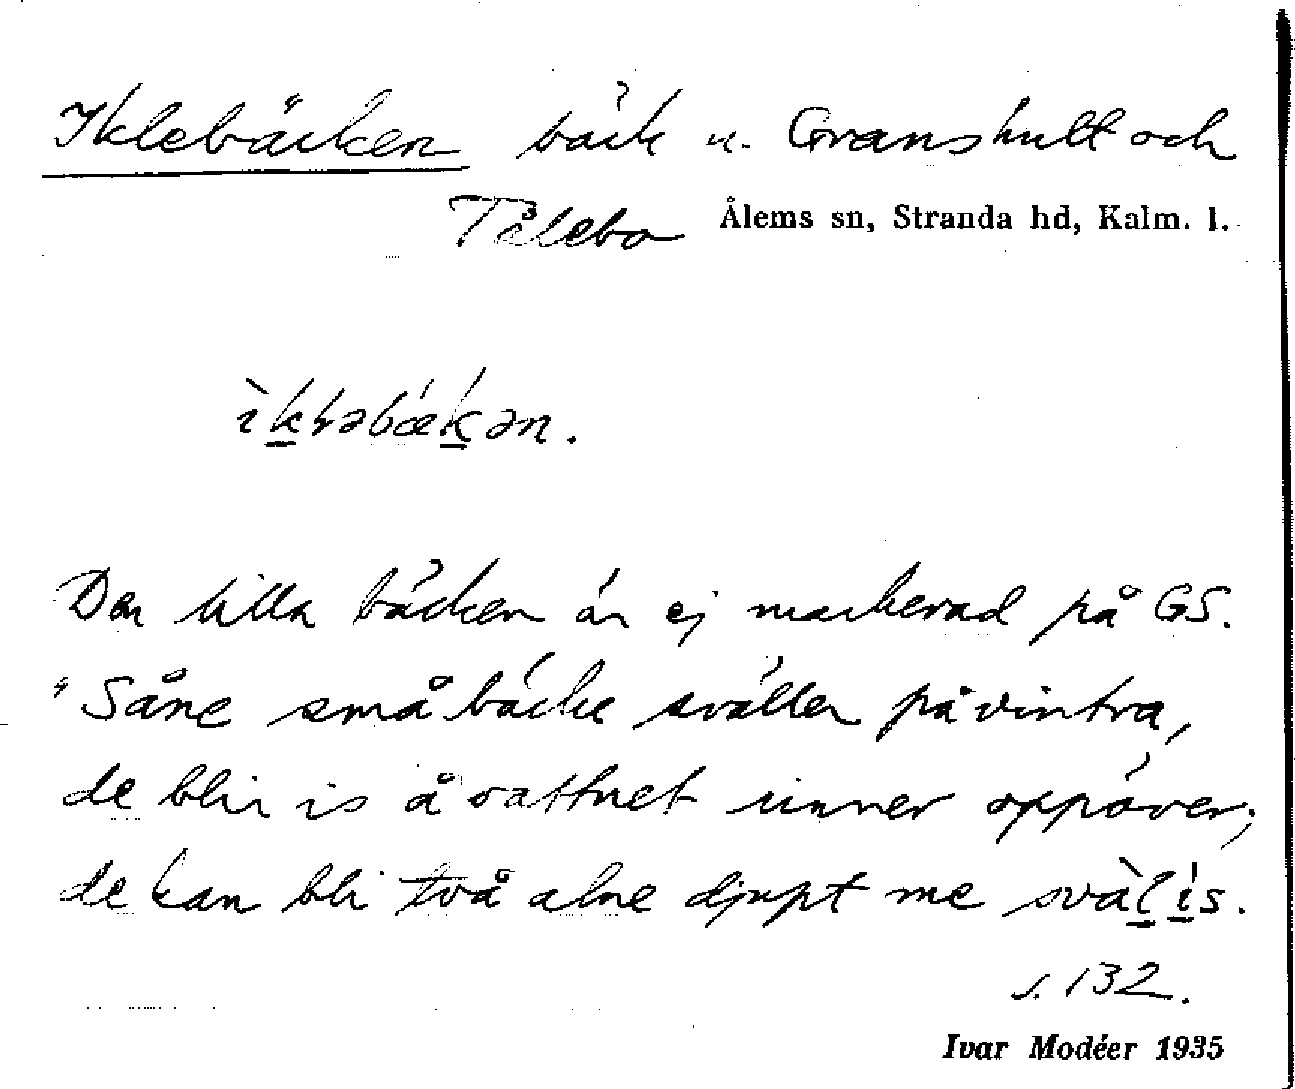 Iklebäcken bäck u. Granshult och
Tålebo Ålems sn, Stranda hd, Kalm. l.
ìkɫəbǽkən.
Den lilla bäcken är ej markerad på GS.
"Såne små bäcke sväller på vintra,
de blir is å vattnet rinner oppöver;
de kan bli två alne djupt me svàl ís.
s. 132.
Ivar Modéer 1935